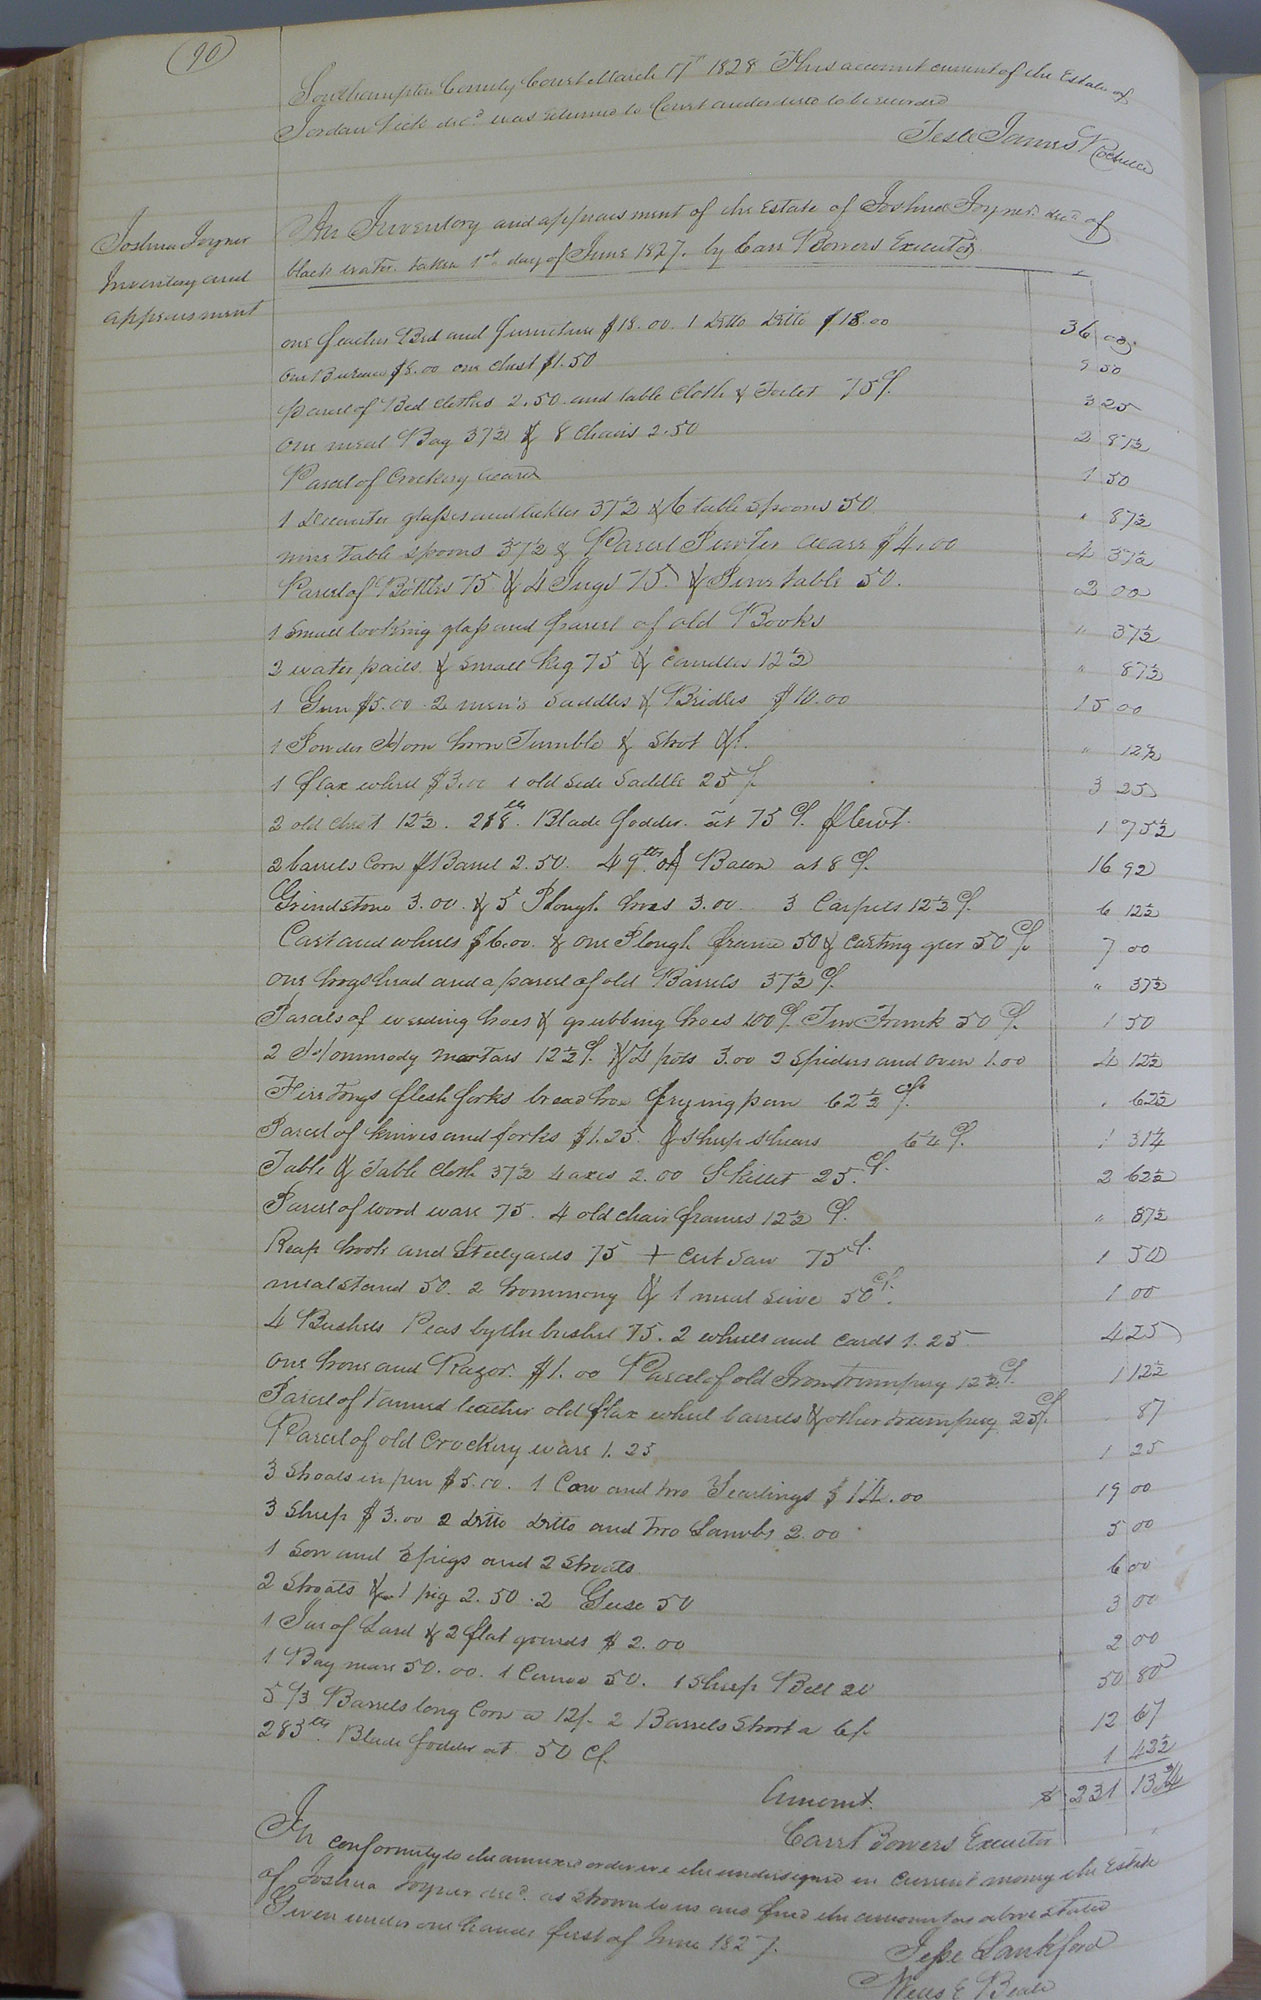 90
Southampton County Court March 17th 1828 This account current of the Estate of
Jordan Vick decd was returned to Court and ordered to be recorded
Teste James Rochelle
Joshua Joyner
Inventory and
appraisment
An Inventory and appraisment of the Estate of Joshua Joyner decd of
black water taken 1st day of June 1827. by Carr Bowers Executor
one feather Bed and furniture $18.00. 1 ditto ditto $18.00 36 00
One Bureau $8.00 one chest $1.50 9 50
parcel of Bed clothes 2.50 and table cloth & Toilet 75 c/. 3 25
one meal Bag 37½ & 8 chairs 2.50 2 87½
Parcel of Crockery ware 1 50
1 Decanter glasses and 37½ & 6 table spoons 50 " 87½
nine table spoons 37½ & Parcel Pewter ware $4.00 4 37½
Parcel of Bottles 75 & 4 Jugs 75 & Pine table 50. 2 00
1 Small looking glass and parcel of old Books " 37½
2 water pails & small keg 75 & candles 12½ " 87½
1 Gun $5.00 2 men's Saddles & Bridles $10.00 15 00
1 Powder Horn horn Tumble & Shot &c. " 12½
1 flax wheel $3.00 1 old Side Saddle 25 c/. 3 25
2 old chest 12½. 218 lb. Blade fodder. at 75 c/. pr Cwt. 1 75½
2 barrels Corn pr Barrel 2.50. 49 lbs of Bacon at 8 c/. 16 92
Grindstone 3.00. & 5 Plough hoes 3.00. 3 Carpets 12½ c/. 6 12½
Cart and wheels $6.00. & one Plough frame 50 & Carting gear 50 c/. 7 00
one hogshead and a parcel of old Barrels 37½ c/. " 37½
Parcels of weeding hoes & grubbing hoes 100 c/. Tin Trunk 50 c/. 1 50
2 Hommody mortars 12½ c/. & 4 pots 3.00 2 Spiders and oven 1.00 4 12½
Fire Tongs flesh forks bread hoe frying pan 62½ c/. " 62½
Parcel of knives and forks $1.25. & Sheep shears 6¼ c/. 1 31¼
Table & Table Cloth 37½ 4 axes 2.00 Skillet 25. c/. 2 62½
Parcel of wood ware 75. 4 old chair frames 12½ c/. " 87½
Reap hook and Steelyards 75 + Cut Saw 75 c/. 1 50
meal stand 50. 2 hommony & 1 meal Seive 50 c/. 1 00
4 Bushels Peas by the bushel 75. 2 wheels and cards 1.25 4 25
one hone and Razor. $1.00 Parcel of old Iron trumpery 12½ c/. 1 12½
Parcel of tanned leather old flax wheel barrels & other trumpery 25 c/. 87
Parcel of old Crockery ware 1.25 1 25
3 Shoats in pen $5.00. 1 Cow and two Yearlings $14.00 19 00
3 Sheep $3.00 2 ditto ditto and two Lambs 2.00 5 00
1 Sow and 5 pigs and 2 Shoats 6 00
2 Shoats & 1 pig 2.50. 2 Geese 50 3 00
1 Jar of Lard & 2 flat gourds $2.00 2 00
1 Bay mare 50.00. 1 Canoe 50. 1 Sheep Bell 20 50 80
5 1/3 Barrels long Corn a 12/. 2 Barrels Short a 6/. 12 67
283 lb. Blade fodder at 50 c/. 1 42½
Amount. $ 231 13¾
Carr Bowers Executor
In conformity to the annexed order we the undersigned in current money the Estate
of Joshua Joyner decd. as shown to us and find the amount as above stated
Given under our hands first of June 1827.
Jesse Lankford
E Beale